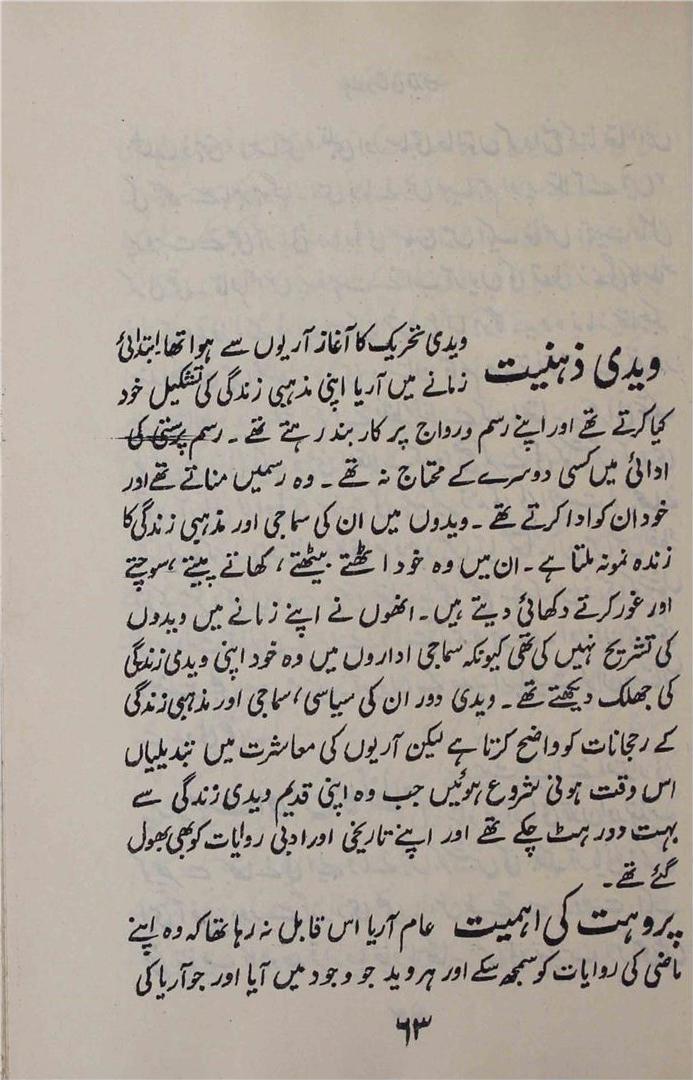 ویدی ذہنیت ویدی تحریک کا آغاز آریوں سے ہوا تھا۔ ابتدائی
زمانے میں آریا اپنی مذہبی زندگی کی تشکیل خود
کیا کرتے تھے اور اپنے رسم و رواج پر کار بند رہتے تھے۔ رسم پرستی کی
ادائی میں کسی دوسرے کے محتاج نہ تھے۔ وہ رسمیں مناتے تھے اور
خود ان کو ادا کرتے تھے۔ ویدوں میں ان کی سماجی اور مذہبی زندگی کا
زندہ نمونہ ملتا ہے۔ ان میں وہ خود اٹھتے بیٹھتے، کھاتے پیتے، سوچتے
اور غور کرتے دکھائی دیتے ہیں۔ انھوں نے اپنے زمانے میں ویدوں
کی تشریح نہیں کی تھی کیونکہ سماجی اداروں میں وہ خود اپنی ویدی زندگی
کی جھلک دیکھتے تھے۔ ویدی دور ان کی سیاسی، سماجی اور مذہبی زندگی
کے رجحانات کو واضح کرتا ہے لیکن آریوں کی معاشرت میں تبدیلیاں
اس وقت ہونی شروع ہوئیں جب وہ اپنی قدیم ویدی زندگی سے
بہت دور ہٹ چکے تھے اور اپنے تاریخی اور ادبی روایات کو بھی بھول
گئے تھے۔
پروہت کی اہمیت عام آریا اس قابل نہ رہا تھا کہ وہ اپنے
ماضی کی روایات کو سمجھ سکے اور ہر وید جو وجود میں آیا اور جو آریا کی
۶۳